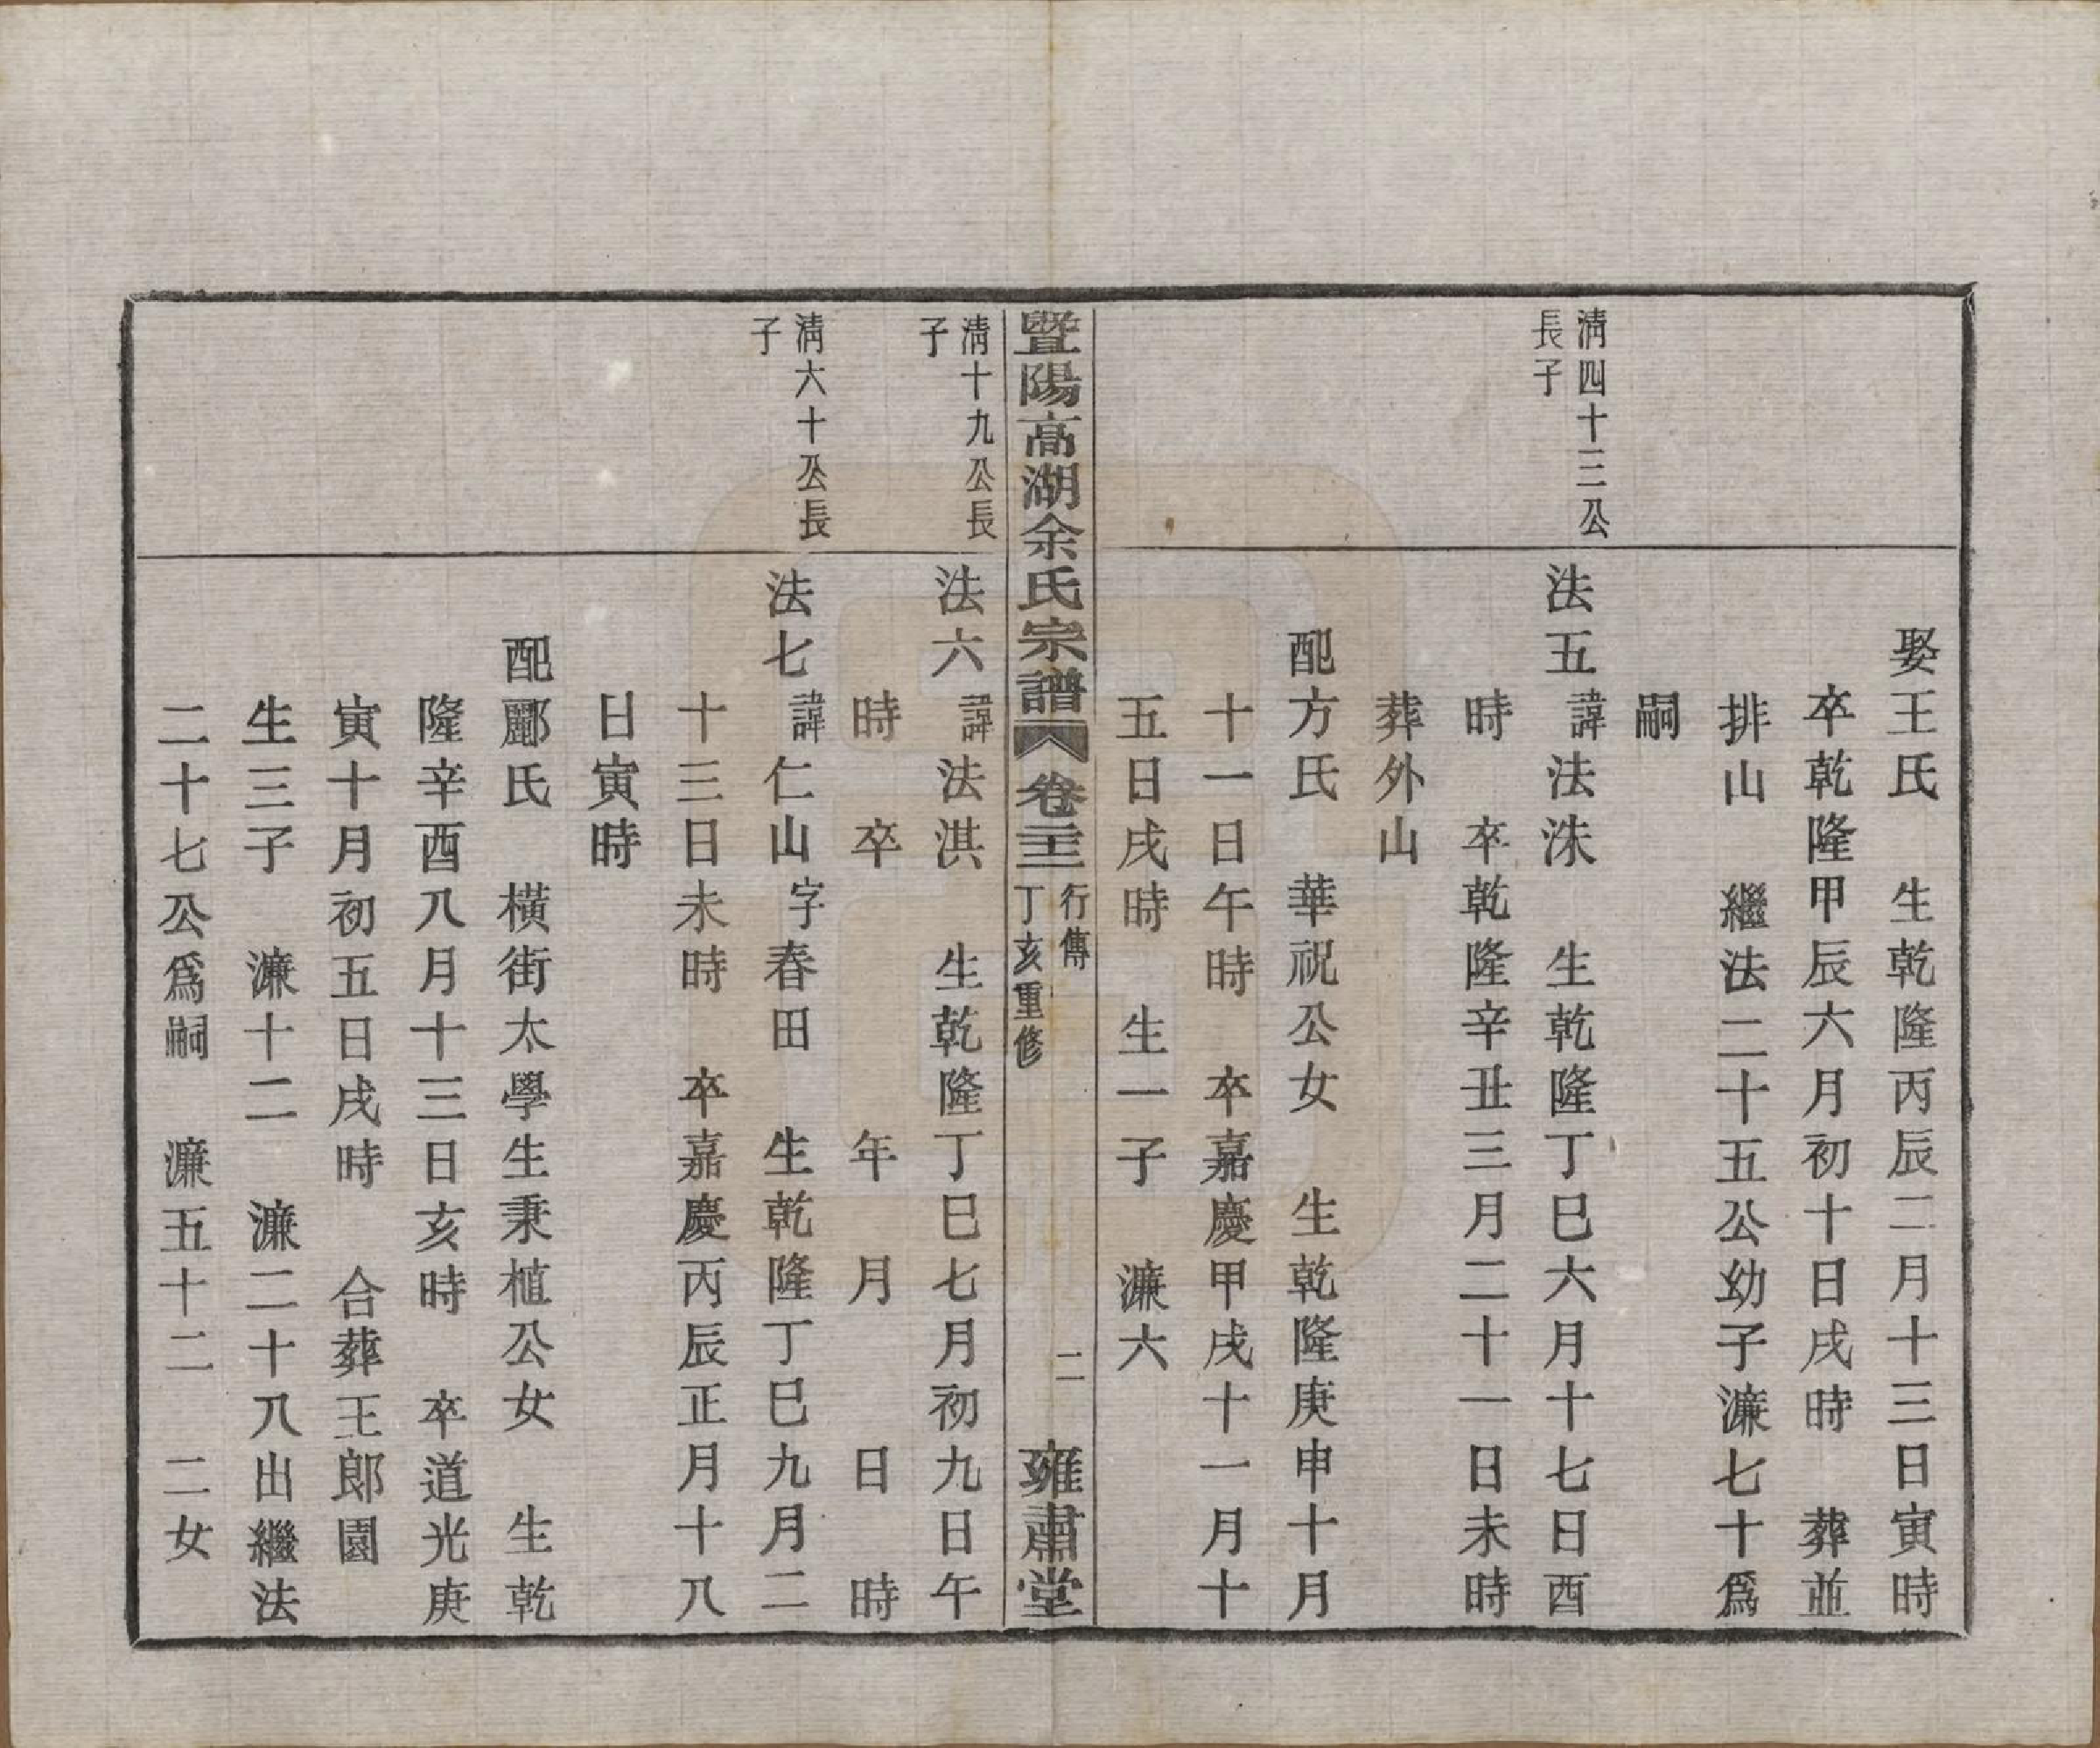 娶王氏 生乾隆丙辰二月十三日寅時
卒乾隆甲辰六月初十日戌時 葬並
排山 繼法二十五公幼子濂七十爲
嗣
清四十三公
長子
法五 諱法洙 生乾隆丁巳六月十七日酉
時 卒乾隆辛丑三月二十一日未時
葬外山
配方氏 華祝公女 生乾隆庚申十月
十一日午時 卒嘉慶甲戌十一月十
五日戌時 生一子 濂六
暨陽高湖余氏宗譜 卷二十三 行傳 丁亥重修 二 雍肅堂
清十九公長
子
法六 諱法淇 生乾隆丁巳七月初九日午
時 卒 年 月 日 時
清六十公長
子
法七 諱仁山字春田 生乾隆丁巳九月二
十三日未時 卒嘉慶丙辰正月十八
日寅時
配酈氏 橫街太學生秉植公女 生乾
隆辛酉八月十三日亥時 卒道光庚
寅十月初五日戌時 合葬王郎園
生三子 濂十二 濂二十八出繼法
二十七公爲嗣 濂五十二 二女